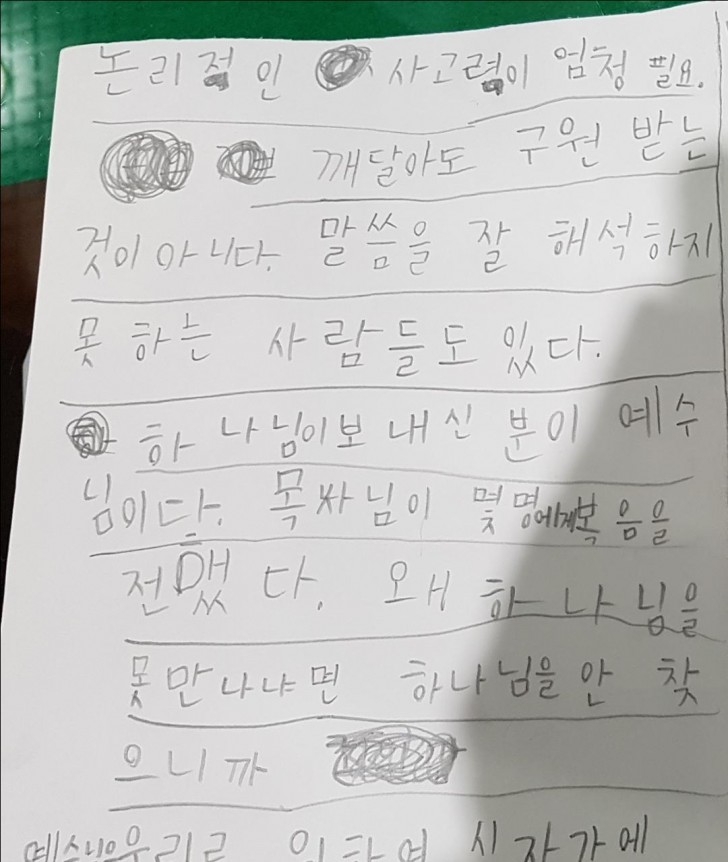 논리적인 사고력이 엄청 필요.
깨달아도 구원 받는
것이 아니다. 말씀을 잘 해석하지
못 하는 사람들도 있다.
하나님이 보내신 분이 예수
님이다. 목싸님이 몇명에게 복음을
전했다. 왜 하나님을
못만나냐면 하나님을 안 찾
으니까
예수님은 우리를 위하여 십자가에